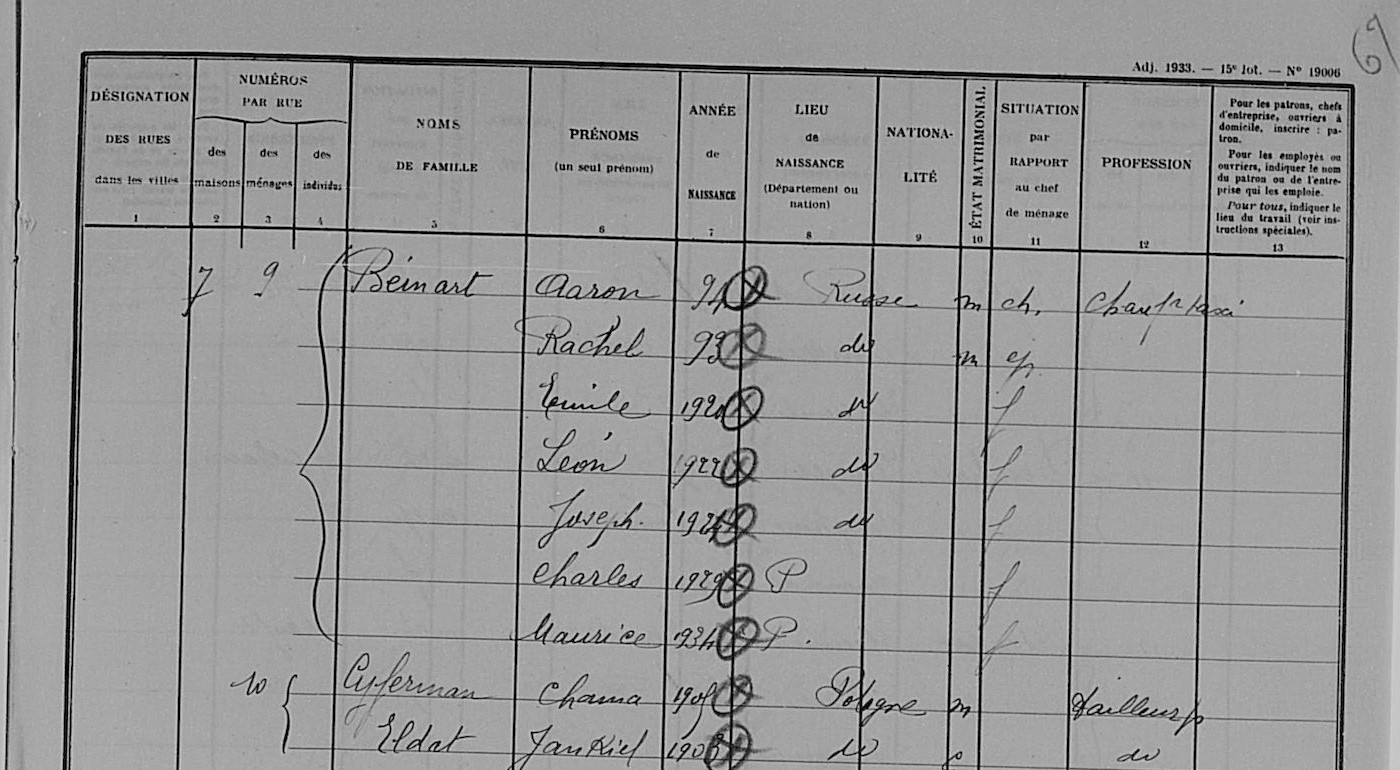 67
Adj. 1933. — 15e lot. — No 19006
DÉSIGNATION
DES RUES
dans les villes
1
NUMÉROS
PAR RUE
des
maisons
2
des
ménages
3
des
individus
4
NOMS
DE FAMILLE
5
PRÉNOMS
(un seul prénom)
6
ANNÉE
de
NAISSANCE
7
LIEU
de
NAISSANCE
(Département ou
nation)
8
NATIONA-
LITÉ
9
ÉTAT MATRIMONIAL
10
SITUATION
par
RAPPORT
au chef
de ménage
11
PROFESSION
12
Pour les patrons, chefs
d'entreprise, ouvriers à
domicile, inscrire : pa-
tron.
Pour les employés ou
ouvriers, indiquer le nom
du patron ou de l'entre-
prise qui les emploie.
Pour tous, indiquer le
lieu du travail (voir ins-
tructions spéciales).
13
7 9 Béinart Aaron 94 Russe m ch. Chaufr taxi
Rachel 93 do m ep.
Emile 1920 do f
Léon 1922 do f
Joseph. 1924 do f
Charles 1929 P f
Maurice 1934 P. f
10 Cyferman Chama 1905 Pologne m Tailleur p
Eldat Jankiel 1903 do do